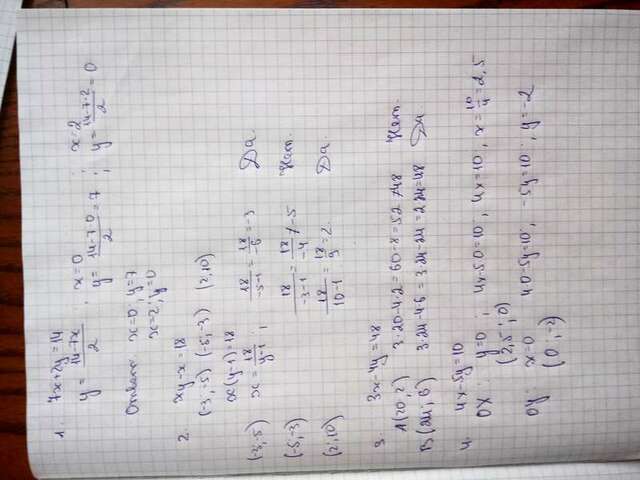 1. 7x+2y=14
y=\frac{14-7x}{2} ; x=0 y=\frac{14-7·0}{2}=7 ; x=2 y=\frac{14-7·2}{2}=0
Ответ: x=0, y=7
x=2, y=0
2. xy-x=18
(-3;-5) (-5;-3) (2;10)
x(y-1)=18
x=\frac{18}{y-1} ;
(-3;-5) \frac{18}{-5-1}=\frac{18}{6}=-3 Да
(-5;-3) \frac{18}{-3-1}=\frac{18}{-4}≠-5 Нет.
(2;10) \frac{18}{10-1}=\frac{18}{9}=2. Да
3. 3x-4y=48
A(20;2) 3·20-4·2=60-8=52≠48 Нет.
B(24;6) 3·24-4·6=3·24-24=2·24=48 Да
4. 4x-5y=10
OX: y=0 ; 4x-5·0=10 ; 4x=10 ; x=\frac{10}{4}=2,5
(2,5; 0)
OY: x=0 4·0-5y=10 ; -5y=10 ; y=-2
(0; -2)